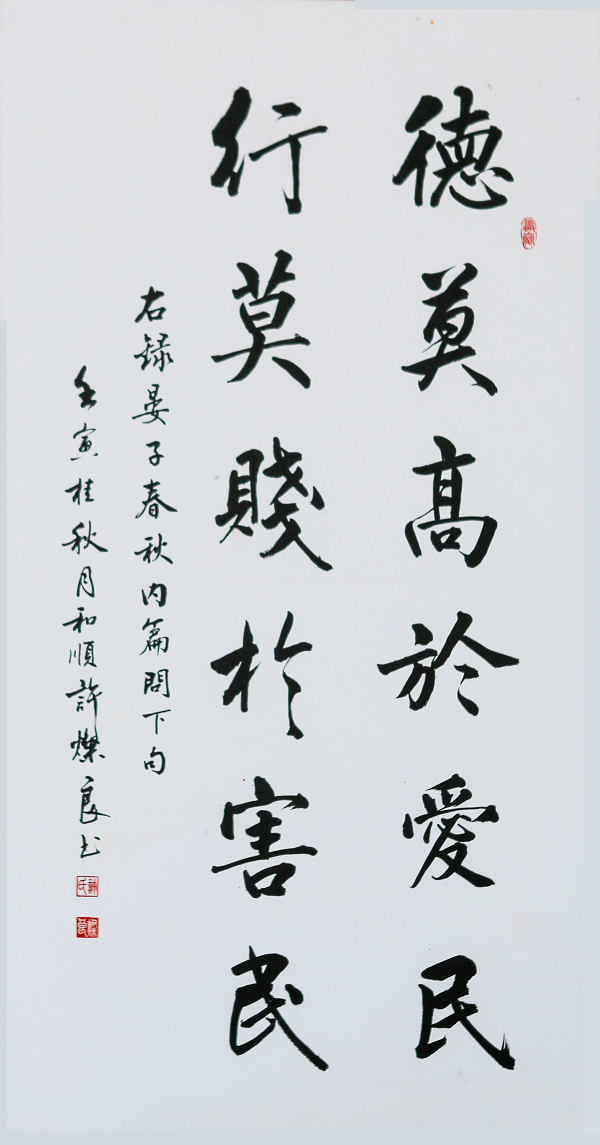 德莫高於愛民
行莫賤於害民
右録晏子春秋内篇問下句
壬寅桂秋月和順許燦良书